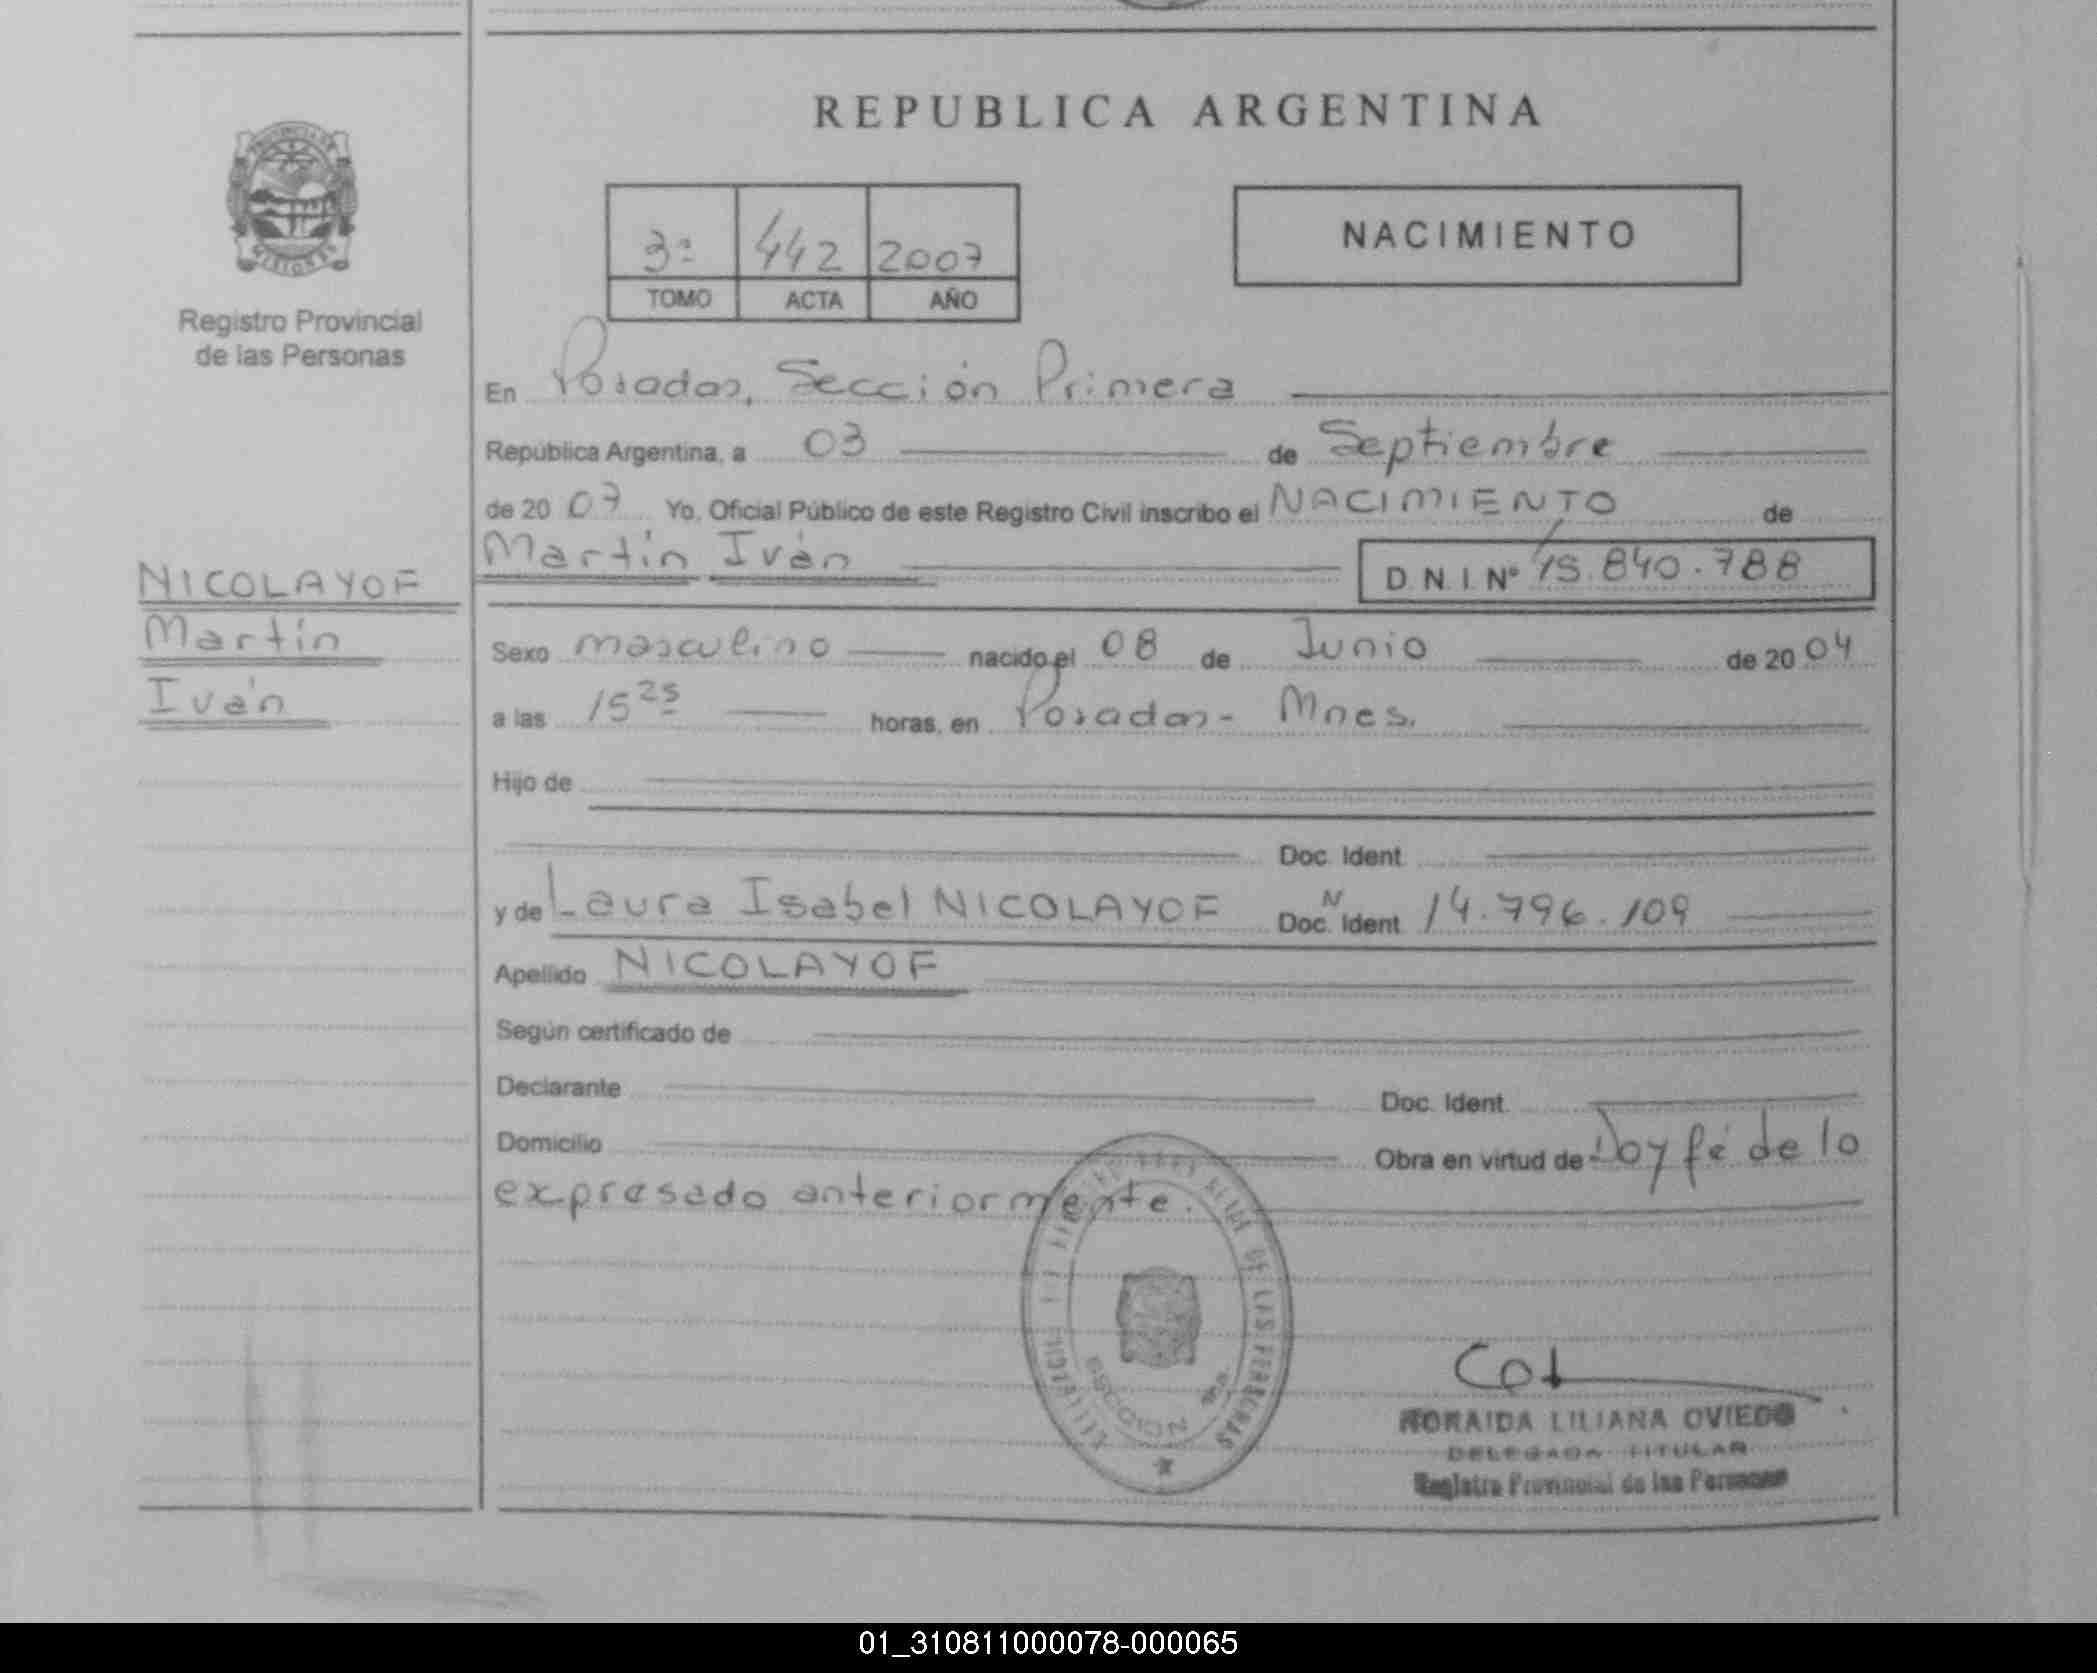 REPUBLICA ARGENTINA
PROVINCIA DE
MISIONES
Registro Provincial
de las Personas
3ª 442 2007
TOMO ACTA AÑO
NACIMIENTO
En Posadas, Sección Primera
República Argentina, a 03 de Septiembre
de 20 07 Yo, Oficial Público de este Registro Civil inscribo el NACIMIENTO de
Martín Iván D.N.I.Nº 45.840.788
NICOLAYOF
Martín
Iván
Sexo masculino nacido el 08 de Junio de 20 04
a las 15 25 horas, en Posadas - Mnes.
Hijo de
Doc. Ident.
y de Laura Isabel NICOLAYOF Doc. Ident. N 14.796.109
Apellido NICOLAYOF
Según certificado de
Declarante Doc. Ident.
Domicilio Obra en virtud de Doy fé de lo
expresado anteriormente.
DE LAS PERSONAS
SECCION
LILIANA OVIEDO
DELEGADA TITULAR
Registro Provincial de las Personas
01_310811000078-000065